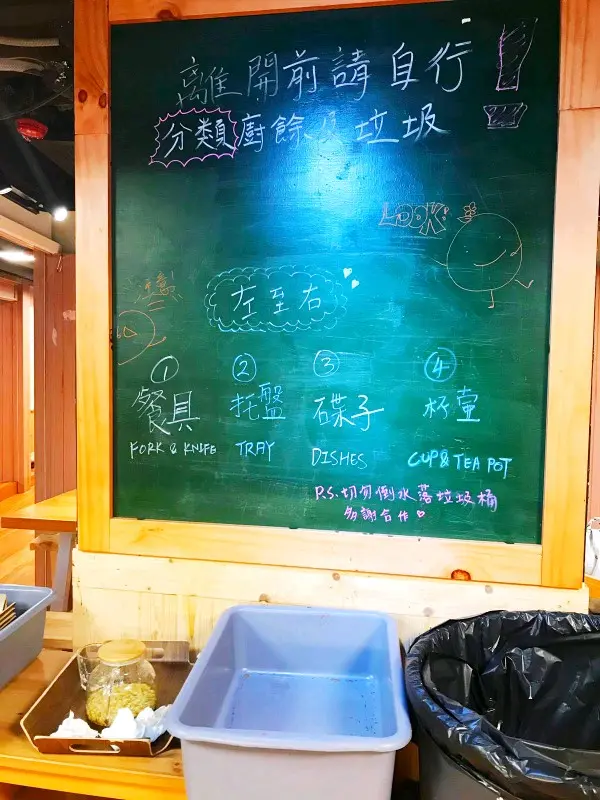 離開前請自行
分類廚餘及垃圾
LOOK!
左至右
① ② ③ ④
餐具 托盤 碟子 杯壺
FORK & KNIFE TRAY DISHES CUP & TEA POT
P.S. 切勿倒水落垃圾桶
多謝合作♡